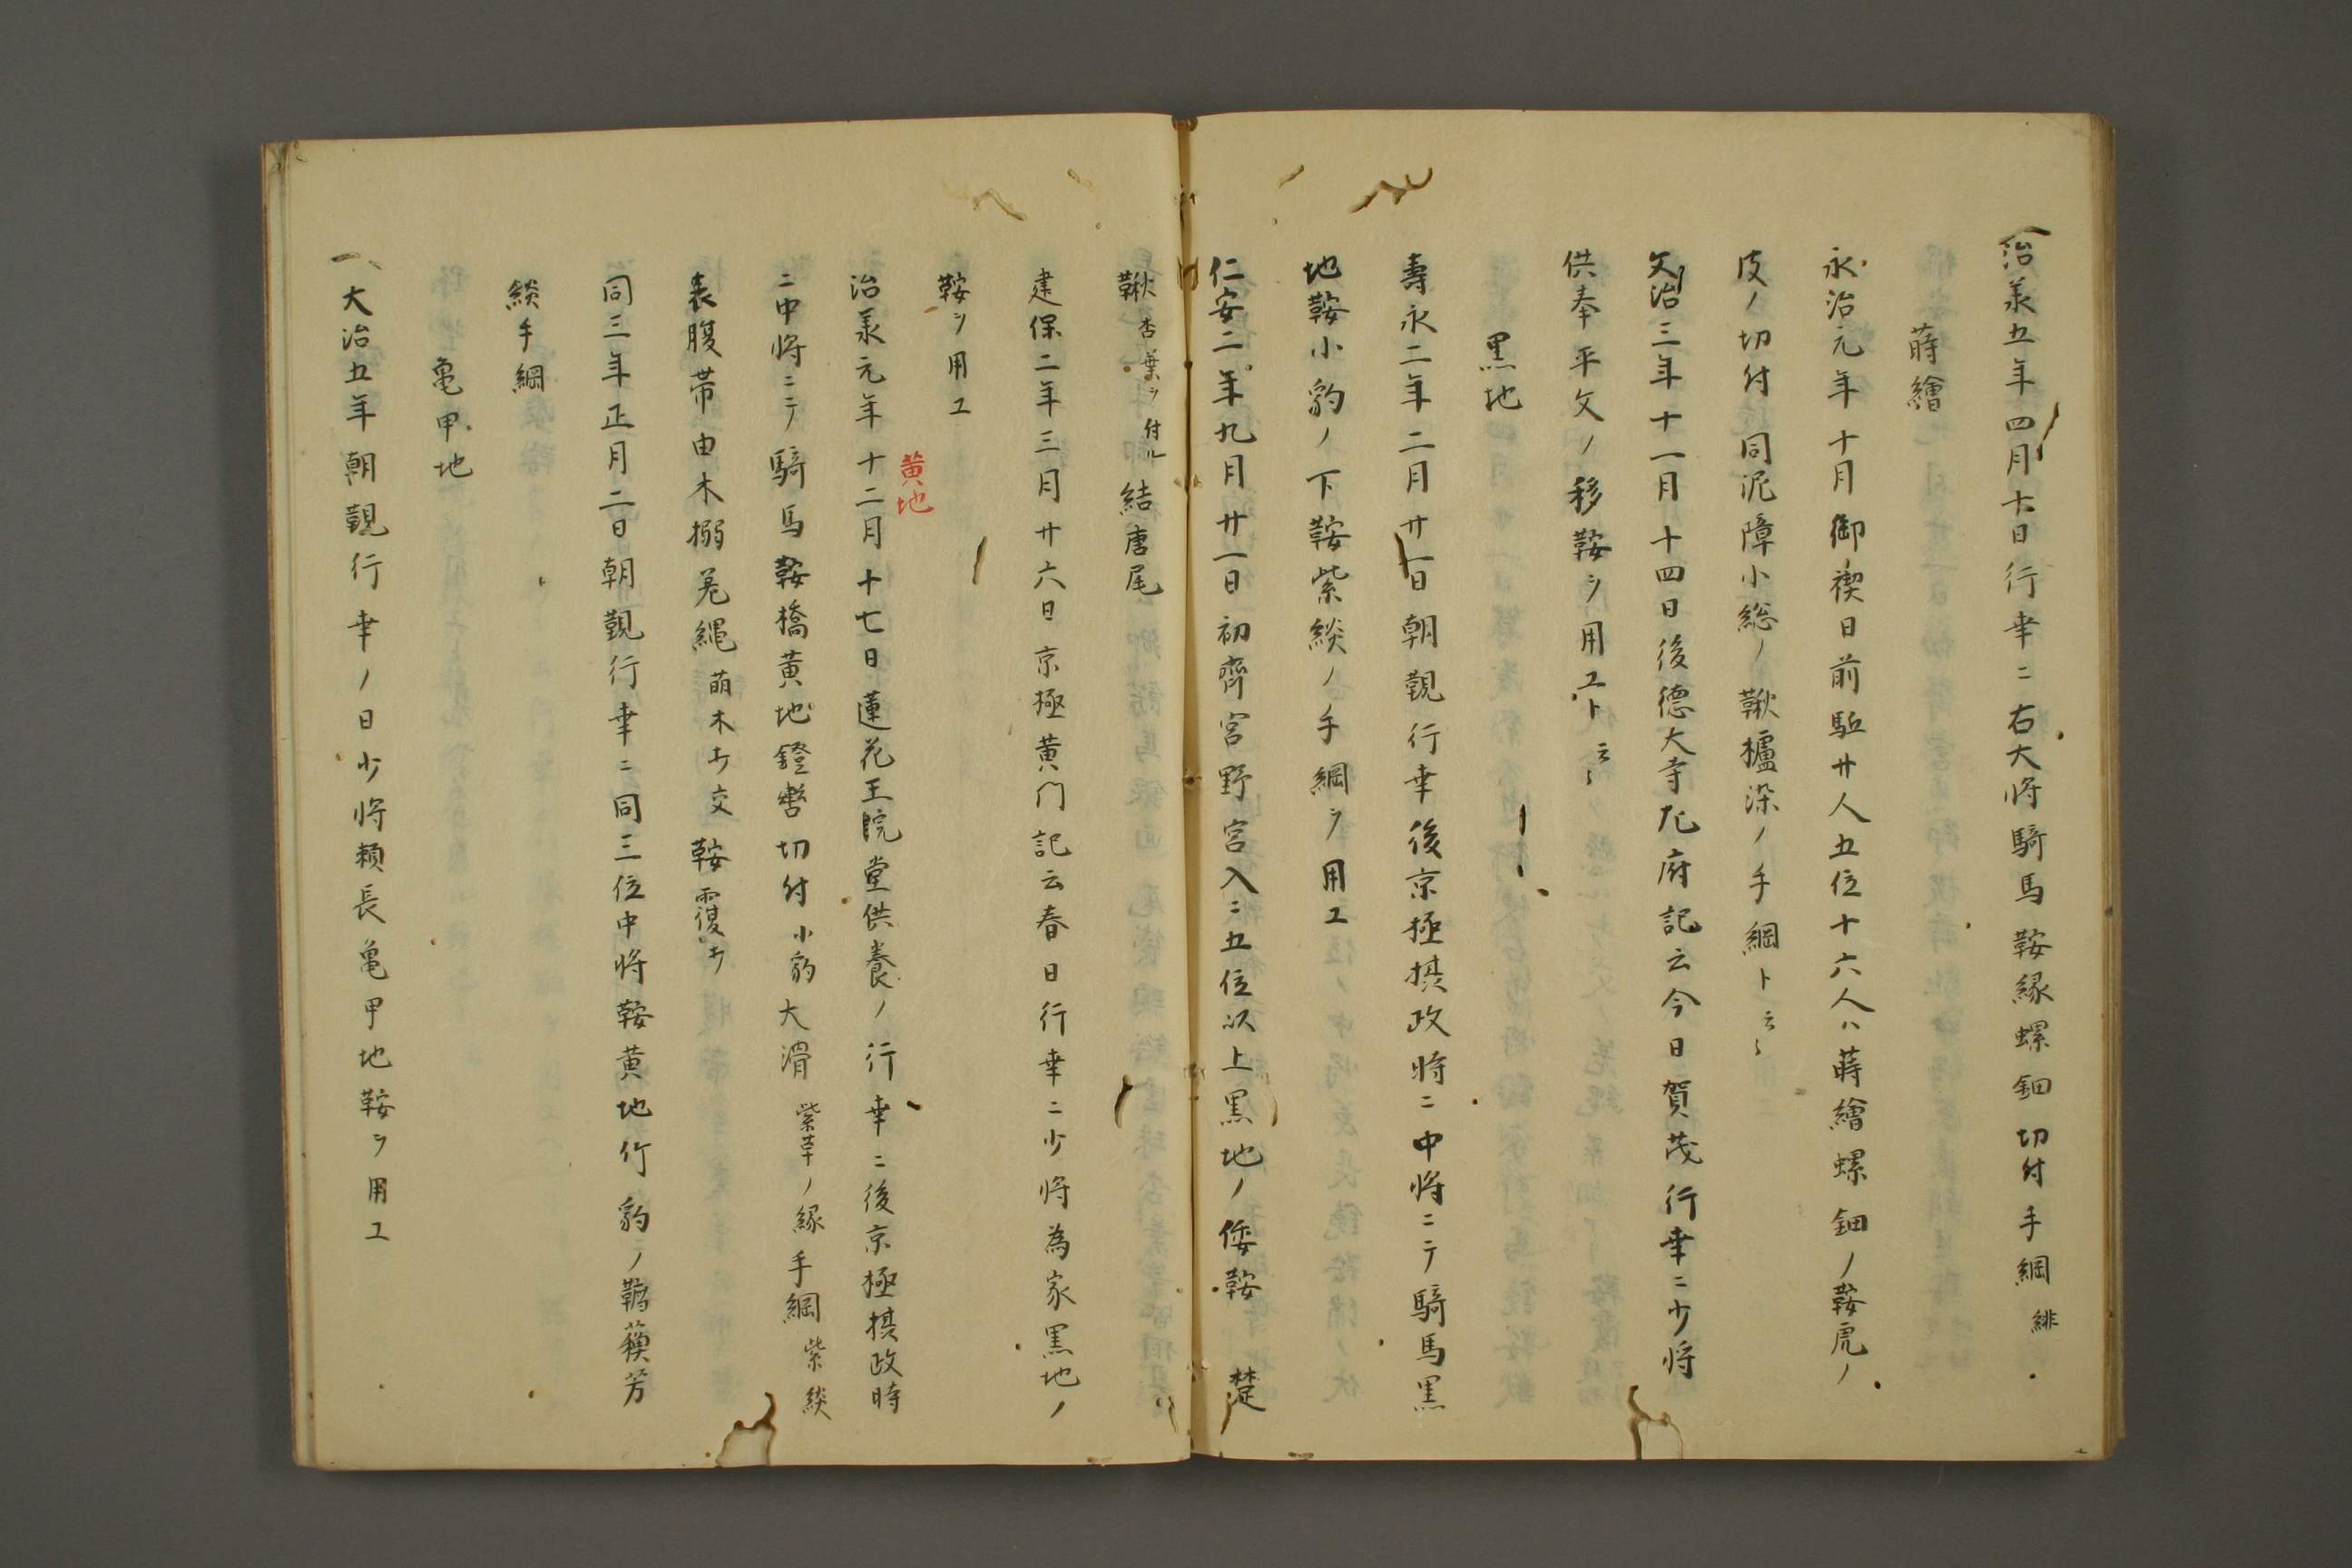 治承五年四月十日行幸ニ右大将騎馬鞍縁螺鈿切付手綱緋
蒔繪
永治元年十月御禊日前駈廿人五位十六人ハ蒔繪螺鈿ノ鞍虎ノ
皮ノ切付同泥障小総ノ鞦櫨染ノ手綱ト云〻
文治三年十一月十四日後德大寺左府記云今日賀茂行幸ニ少将
供奉平文ノ移鞍ヲ用エト云〻
黒地
壽永二年二月廿一日朝覲行幸後京極摂政時ニ中将ニテ騎馬黒
地鞍小豹ノ下鞍紫緂ノ手綱ヲ用エ
仁安二年九月廿一日初齊宮野宮入ニ五位以上黒地ノ倭鞍楚
鞦杏葉ヲ付ル結唐尾
建保二年三月廿六日京極黄门記云春日行幸ニ少将為家黒地ノ
鞍ヲ用エ
黄地
治承元年十二月十七日蓮花王院堂供養ノ行幸ニ後京極摂政時
ニ中将ニテ騎馬鞍橋黄地鐙轡切付小豹大滑紫革ノ縁手綱紫緂
表腹帯由木搦差縄萌木オ交鞍覆オ
同三年正月二日朝覲行幸ニ同三位中将鞍黄地竹豹ノ韉蘓芳
緂手綱
亀甲地
一、大治五年朝覲行幸ノ日少将頼長亀甲地鞍ヲ用エ